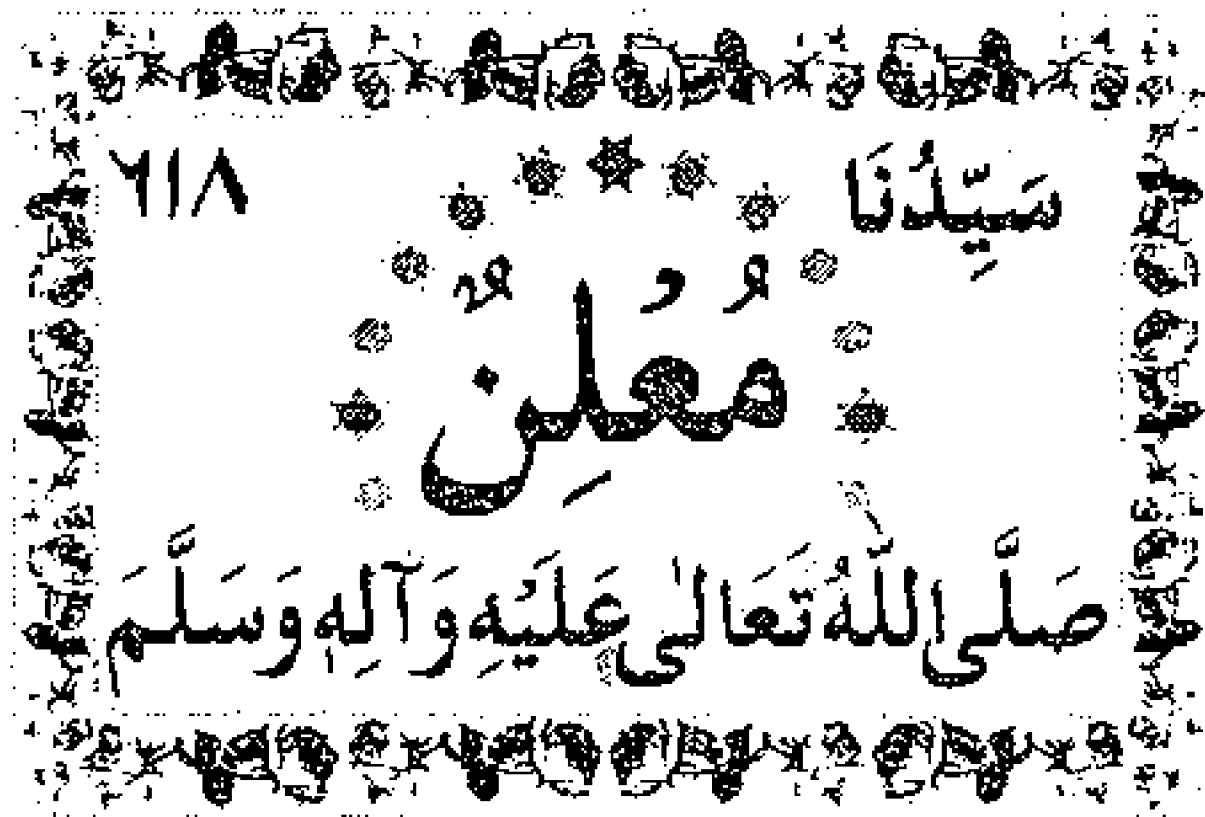 سَيِّدُنَا ٦١٨
مُعْلِنٌ
صَلَّى اللّٰهُ تَعَالٰى عَلَيْهِ وَآلِهٖ وَسَلَّمَ